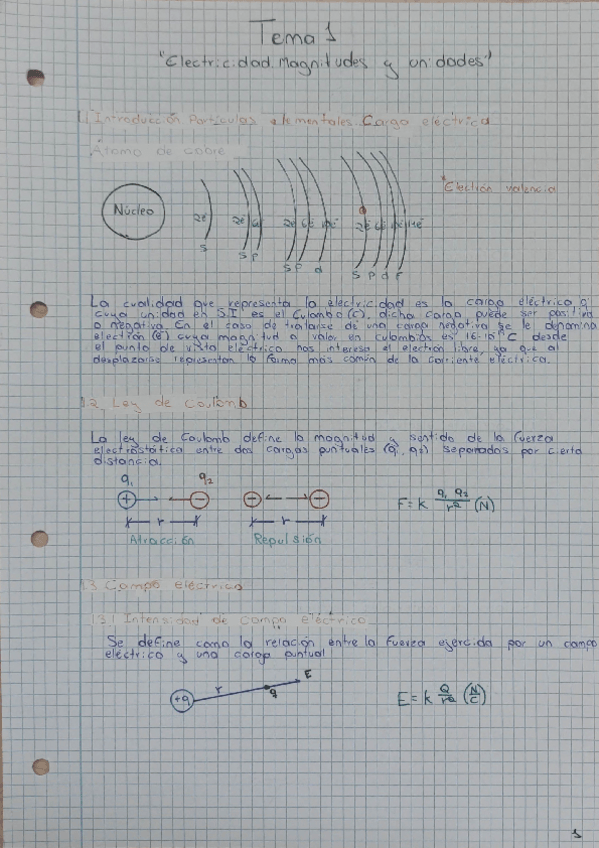 Tema 1
"Electricidad. Magnitudes y unidades"
1.1 Introducción Partículas elementales. Carga eléctrica
Átomo de cobre
Núcleo
2e⁻
2e⁻ 6e⁻
2e⁻ 6e⁻ 10e⁻
2e⁻ 6e⁻ 10e⁻ 14e⁻
S
S P
S P d
S P d F
*Electrón valencia
La cualidad que representa la electricidad es la carga eléctrica q
cuya unidad en S.I es el Culombio (C), dicha carga puede ser positiva
o negativa. En el caso de tratarse de una carga negativa se le denomina
electrón (e⁻) cuya magnitud o valor en culombios es C desde
el punto de vista eléctrico nos interesa el electrón libre, ya que al
desplazarse representan la forma más común de la corriente eléctrica.
1.2 Ley de Coulomb
La ley de Coulomb define la magnitud y sentido de la fuerza
electrostática entre dos cargas puntuales (q₁, q₂) separadas por cierta
distancia.
q₁ q₂
+ - - -
r r
Atracción Repulsión
F = k q₁ q₂ / r² (N)
1.3 Campo eléctrico
1.3.1 Intensidad de campo eléctrico
Se define como la relación entre la fuerza ejercida por un campo
eléctrico y una carga puntual
+q r q E
E = k Q / r² (N/C)
1